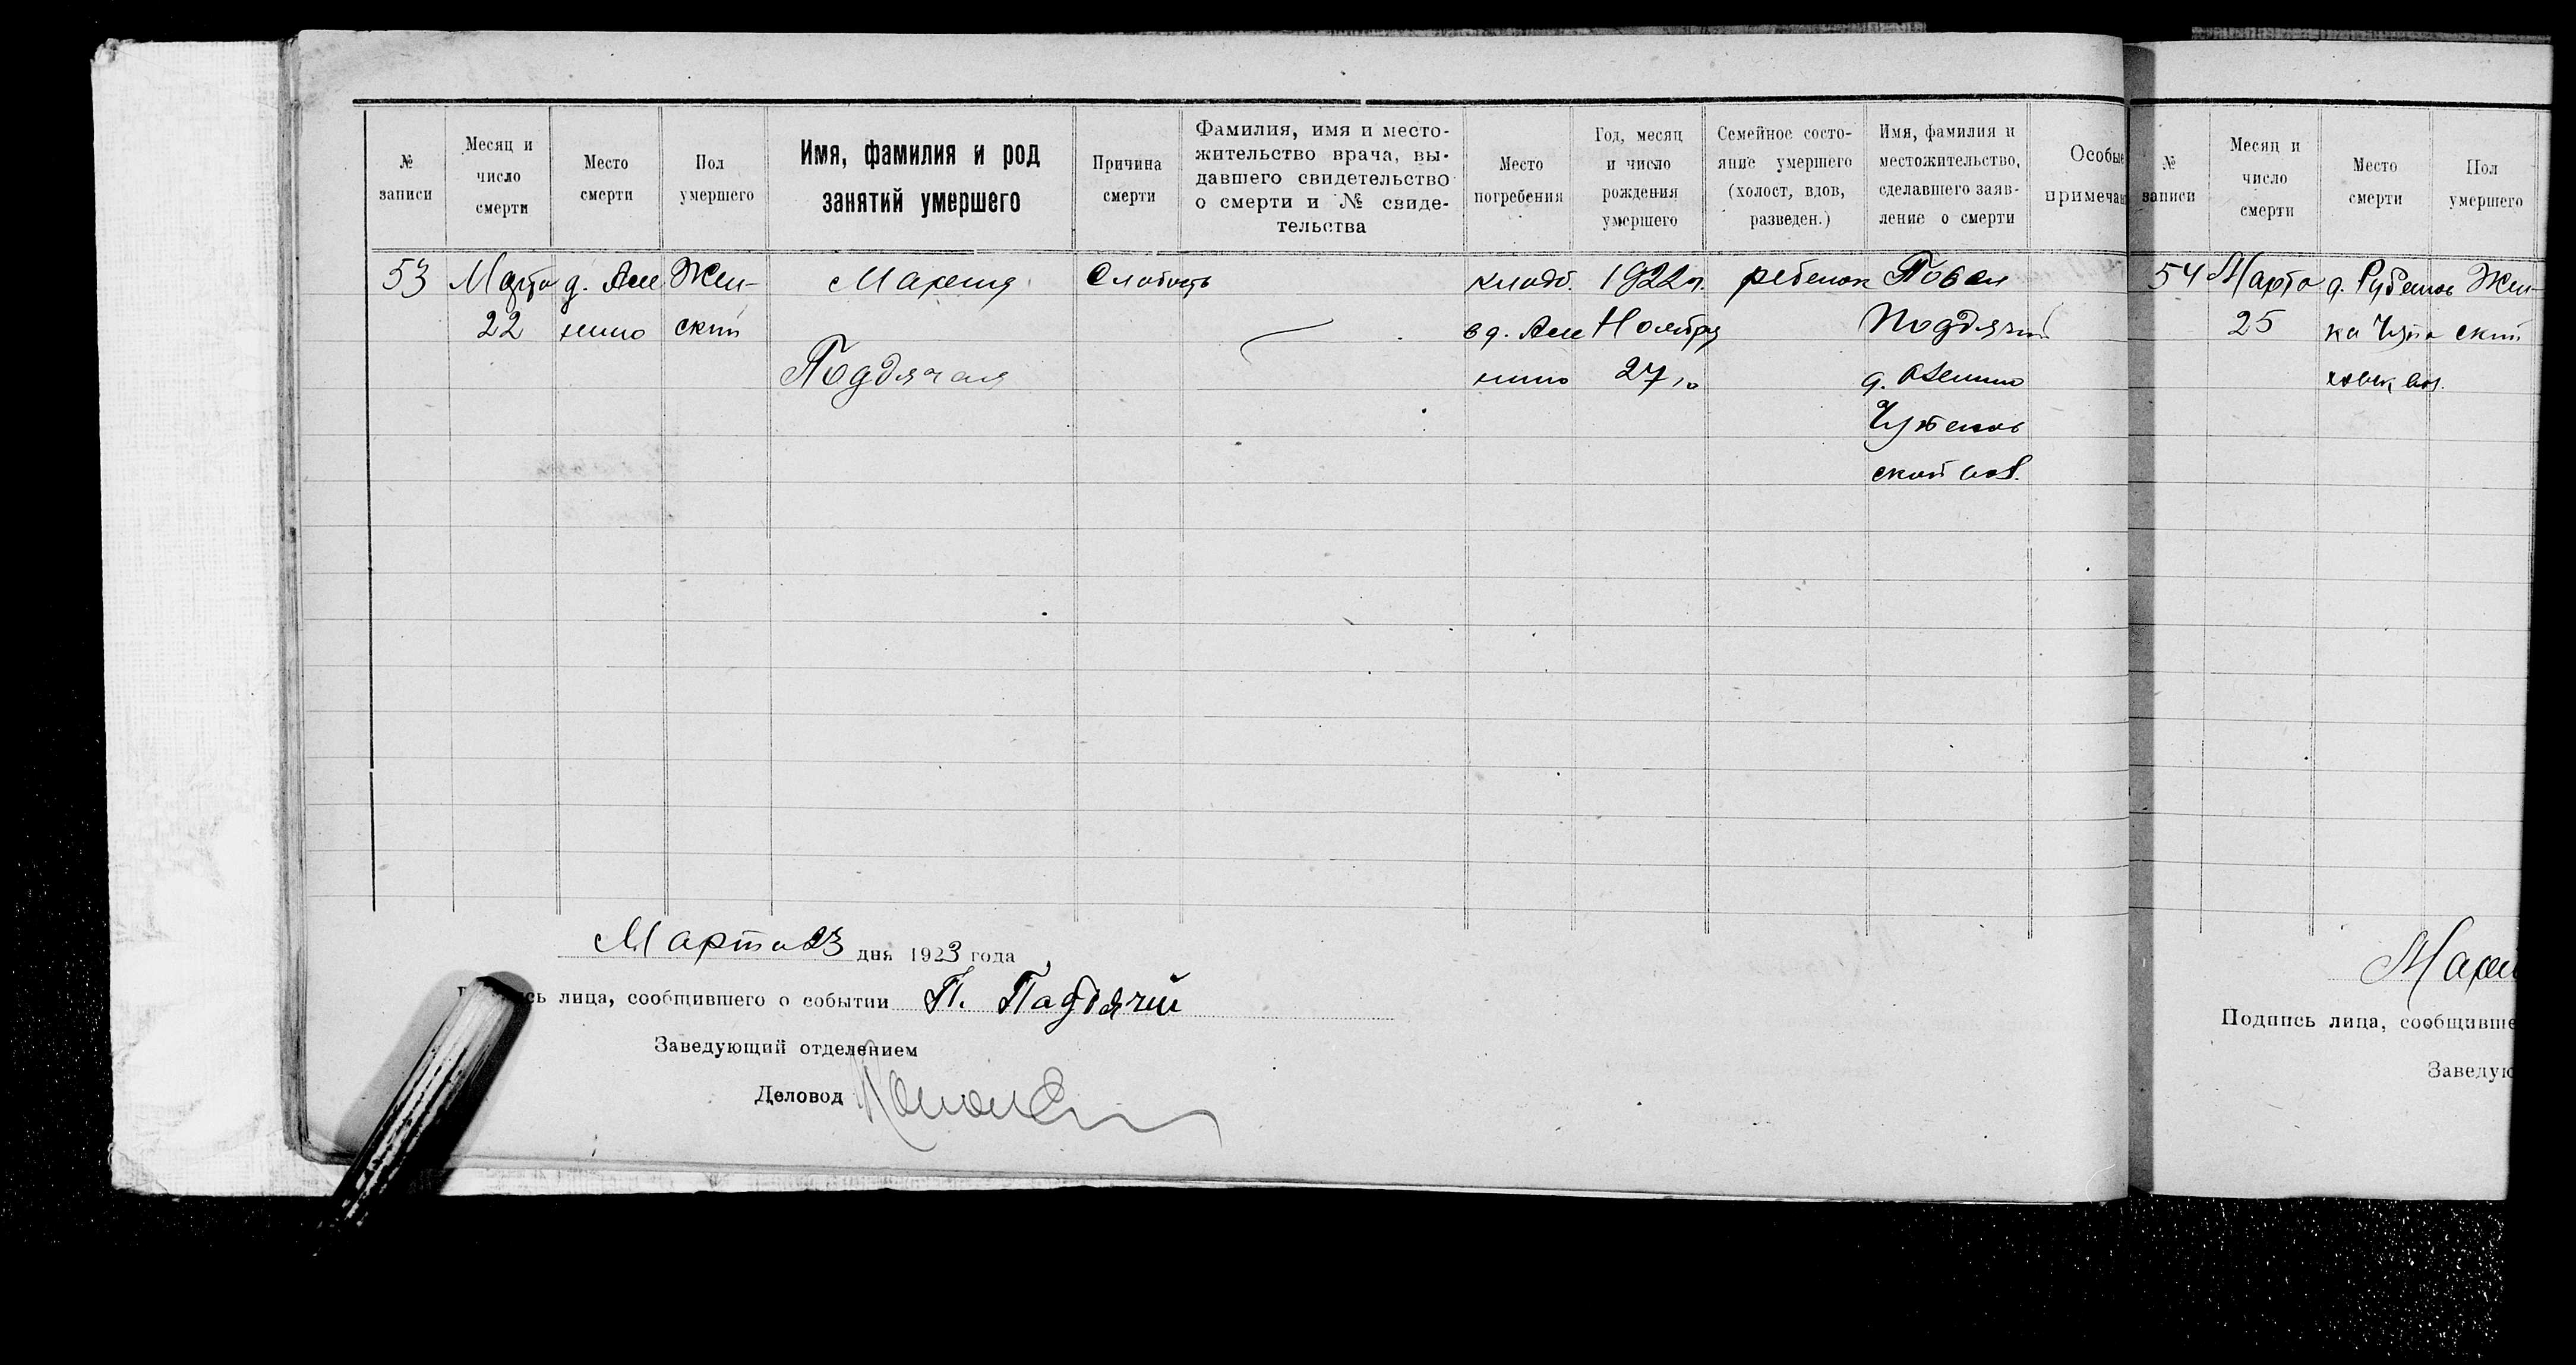 № записи
Месяц и число смерти
Место смерти
Пол умершего
Имя, фамилия и род занятий умершего
Причина смерти
Фамилия, имя и место-
жительство врача, вы-
давшего свидетельство
о смерти и № свиде-
тельства
Место погребения
Год, месяц и число рождения умершего
Семейное состо-
яние умершего
(холост, вдов,
разведен.)
Имя, фамилия и
местожительство,
сделавшего заяв-
ление о смерти
Особые
примечан
53
Марта
22
д. Асе
нино
Жен-
ский
Поддячая
Слабость
кладб.
в д. Асе
нино
1922 г.
Ноября
27
ребенок
Павел
Поддячий
д. Асенино
ской вол.
Марта 23 дня 1923 года
сь лица, сообщившего о событии П. Падьячий
Заведующий отделением
Деловод
№ записи
Месяц и число смерти
Место смерти
Пол умершего
54
Марта
25
д. Рубешов
ка
вол.
Жен-
ский
Подпись лица, сообщивше
Заведую